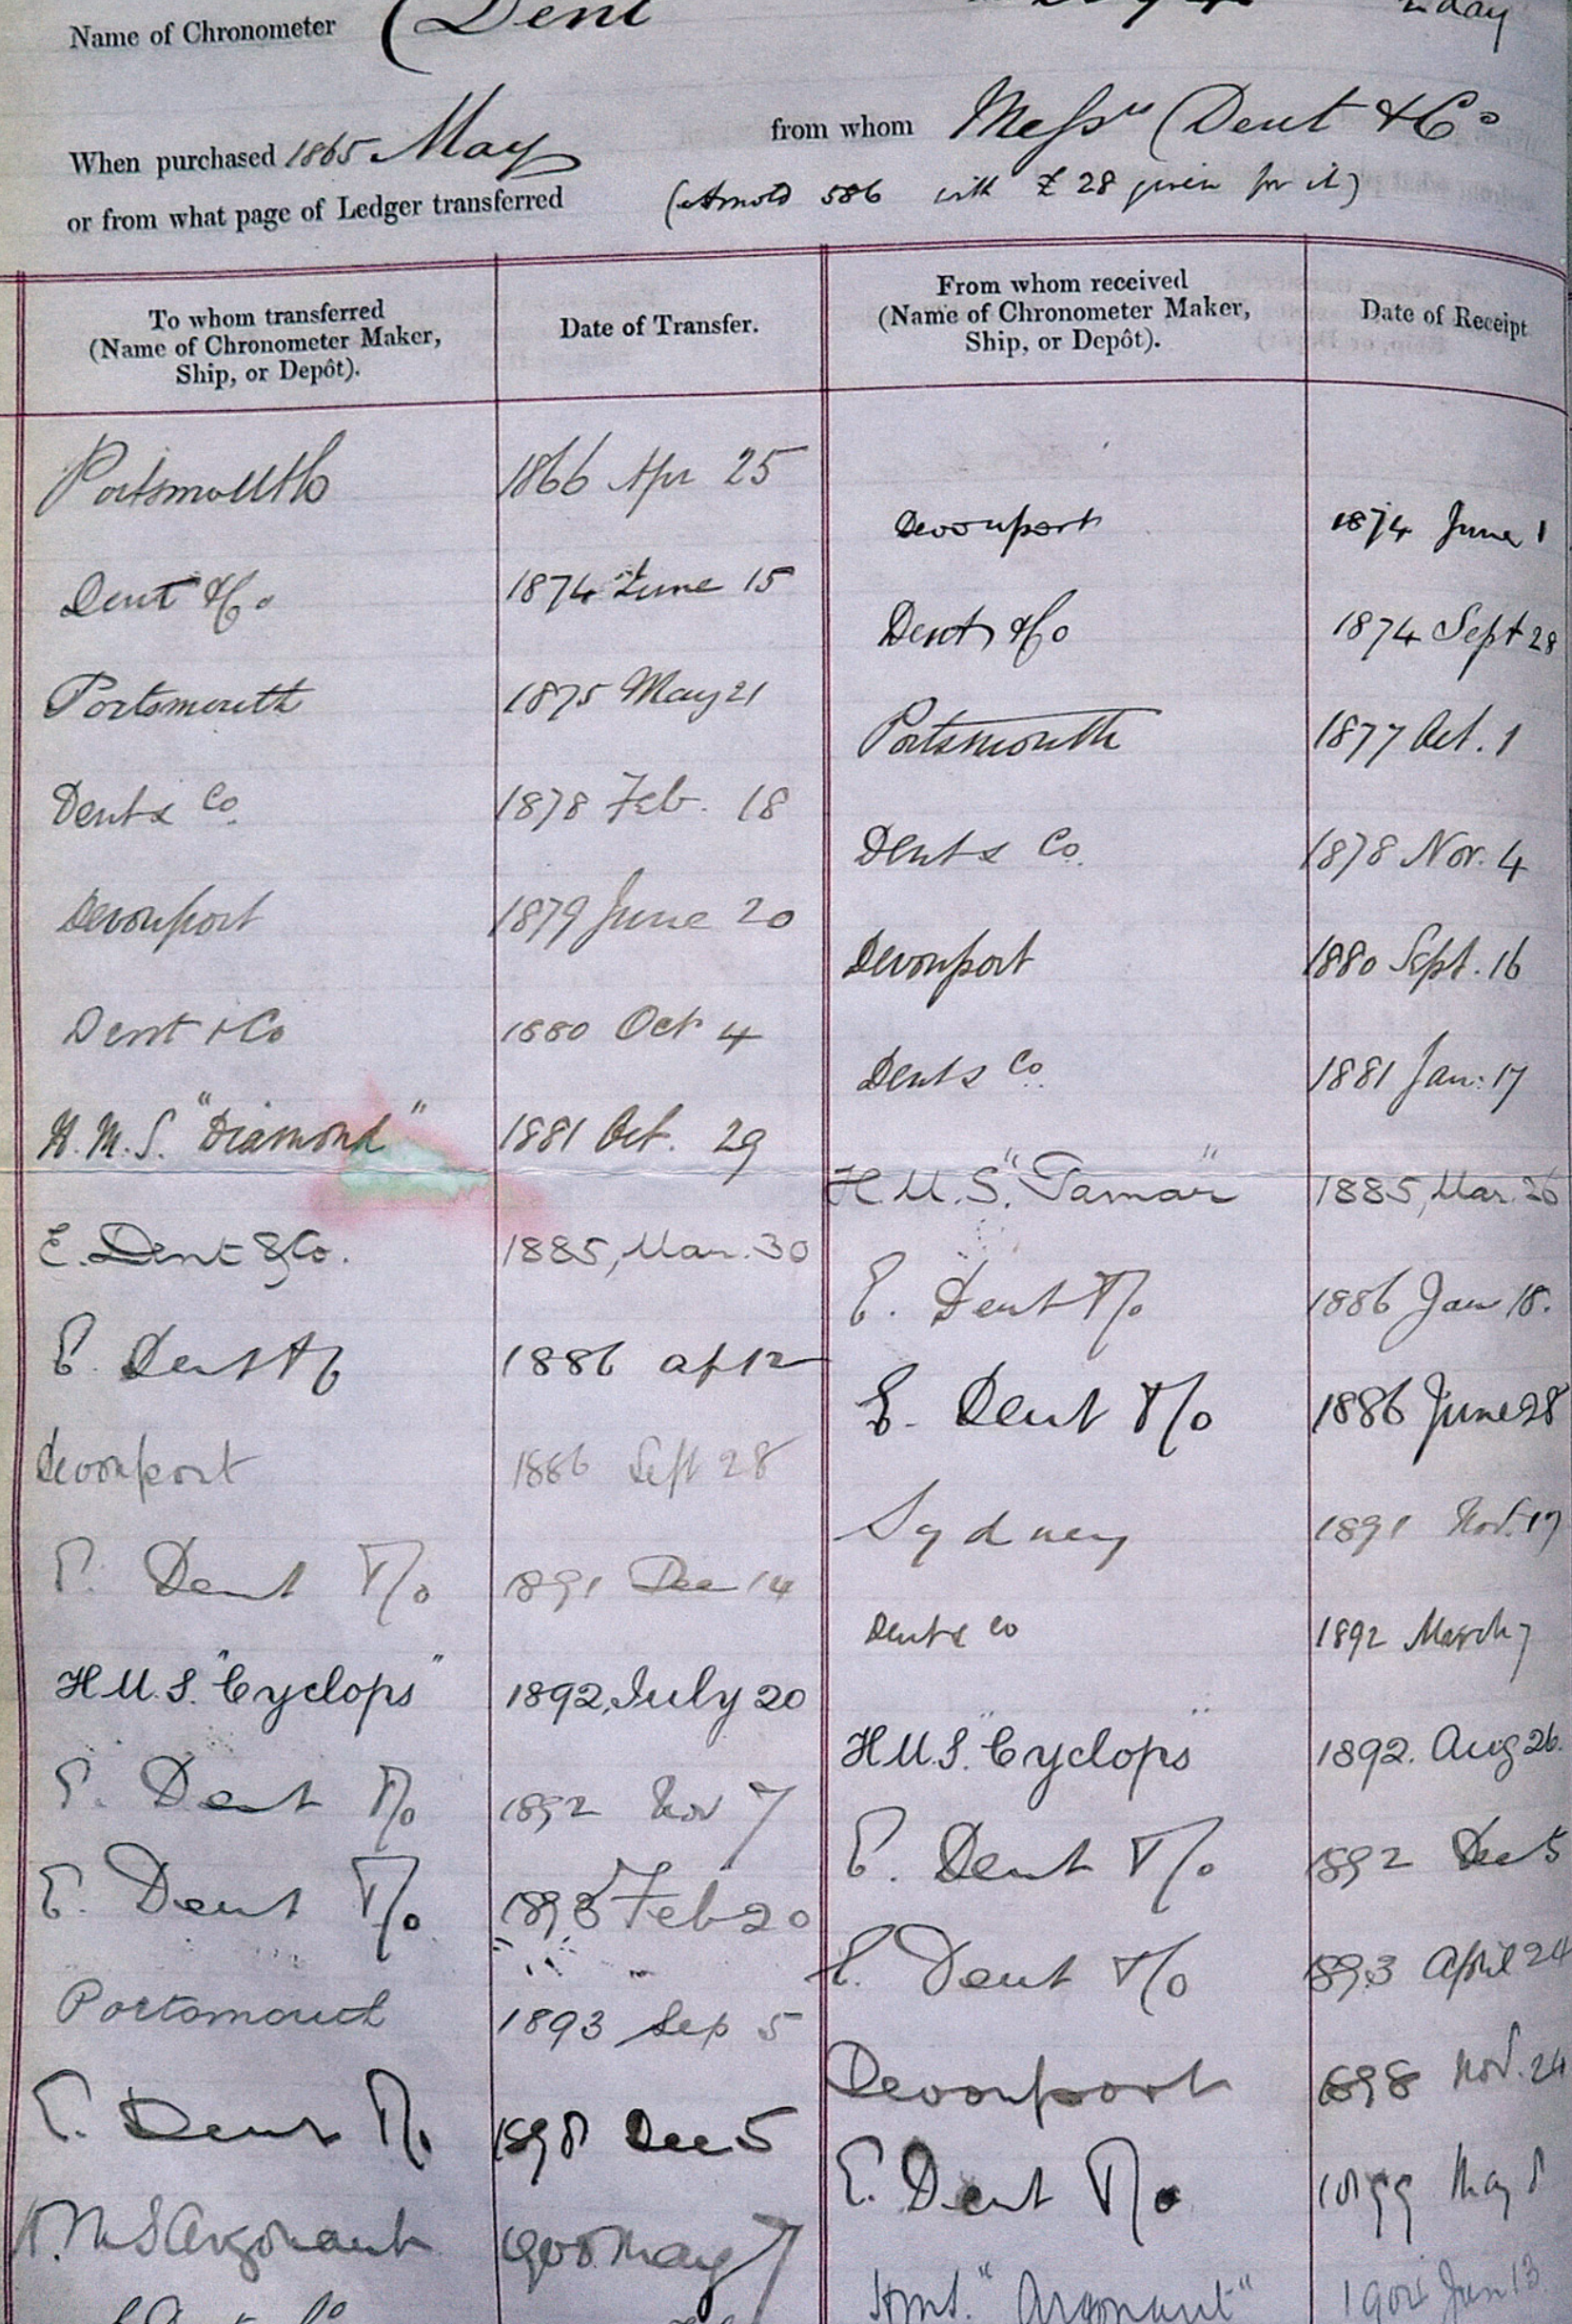 Name of Chronometer Dent
2 day
When purchased 1865 May from whom Messrs Dent & Co
or from what page of Ledger transferred (Arnold 586 with £28 given for it)
To whom transferred
(Name of Chronometer Maker,
Ship, or Depôt).
Date of Transfer.
From whom received
(Name of Chronometer Maker,
Ship, or Depôt).
Date of Receipt
Portsmouth 1866 Apr 25
Devonport 1874 June 1
Dent & Co 1874 June 15
Dent & Co 1874 Sept 28
Portsmouth 1875 May 21
Portsmouth 1877 Oct. 1
Dent & Co. 1878 Feb. 18
Dent & Co. 1878 Nov. 4
Devonport 1879 June 20
Devonport 1880 Sept. 16
Dent & Co 1880 Oct 4
Dent & Co. 1881 Jan: 17
H.M.S. "Diamond" 1881 Oct. 29
H.M.S. "Tamar" 1885, Mar. 26
E. Dent & Co. 1885, Mar. 30
E. Dent & Co 1886 Jan 18.
E. Dent & Co 1886 Ap 12
E. Dent & Co 1886 June 28
Devonport 1886 Sept 28
Sydney 1891 Nov. 17
E. Dent & Co 1891 Dec 14
Dent & Co 1892 March 7
H.M.S. "Cyclops" 1892, July 20
H.M.S. "Cyclops" 1892. Aug 26.
E. Dent & Co 1892 Nov 7
E. Dent & Co 1892 Dec 5
E. Dent & Co 1893 Feb 20
E. Dent & Co 1893 April 24
Portsmouth 1893 Sep 5
Devonport 1898 Nov. 24
E. Dent & Co 1898 Dec 5
E. Dent & Co 1899 May 8
H.M.S Argonaut 1900 May 7
H.M.S. "Argonaut" 1904 Jan 13